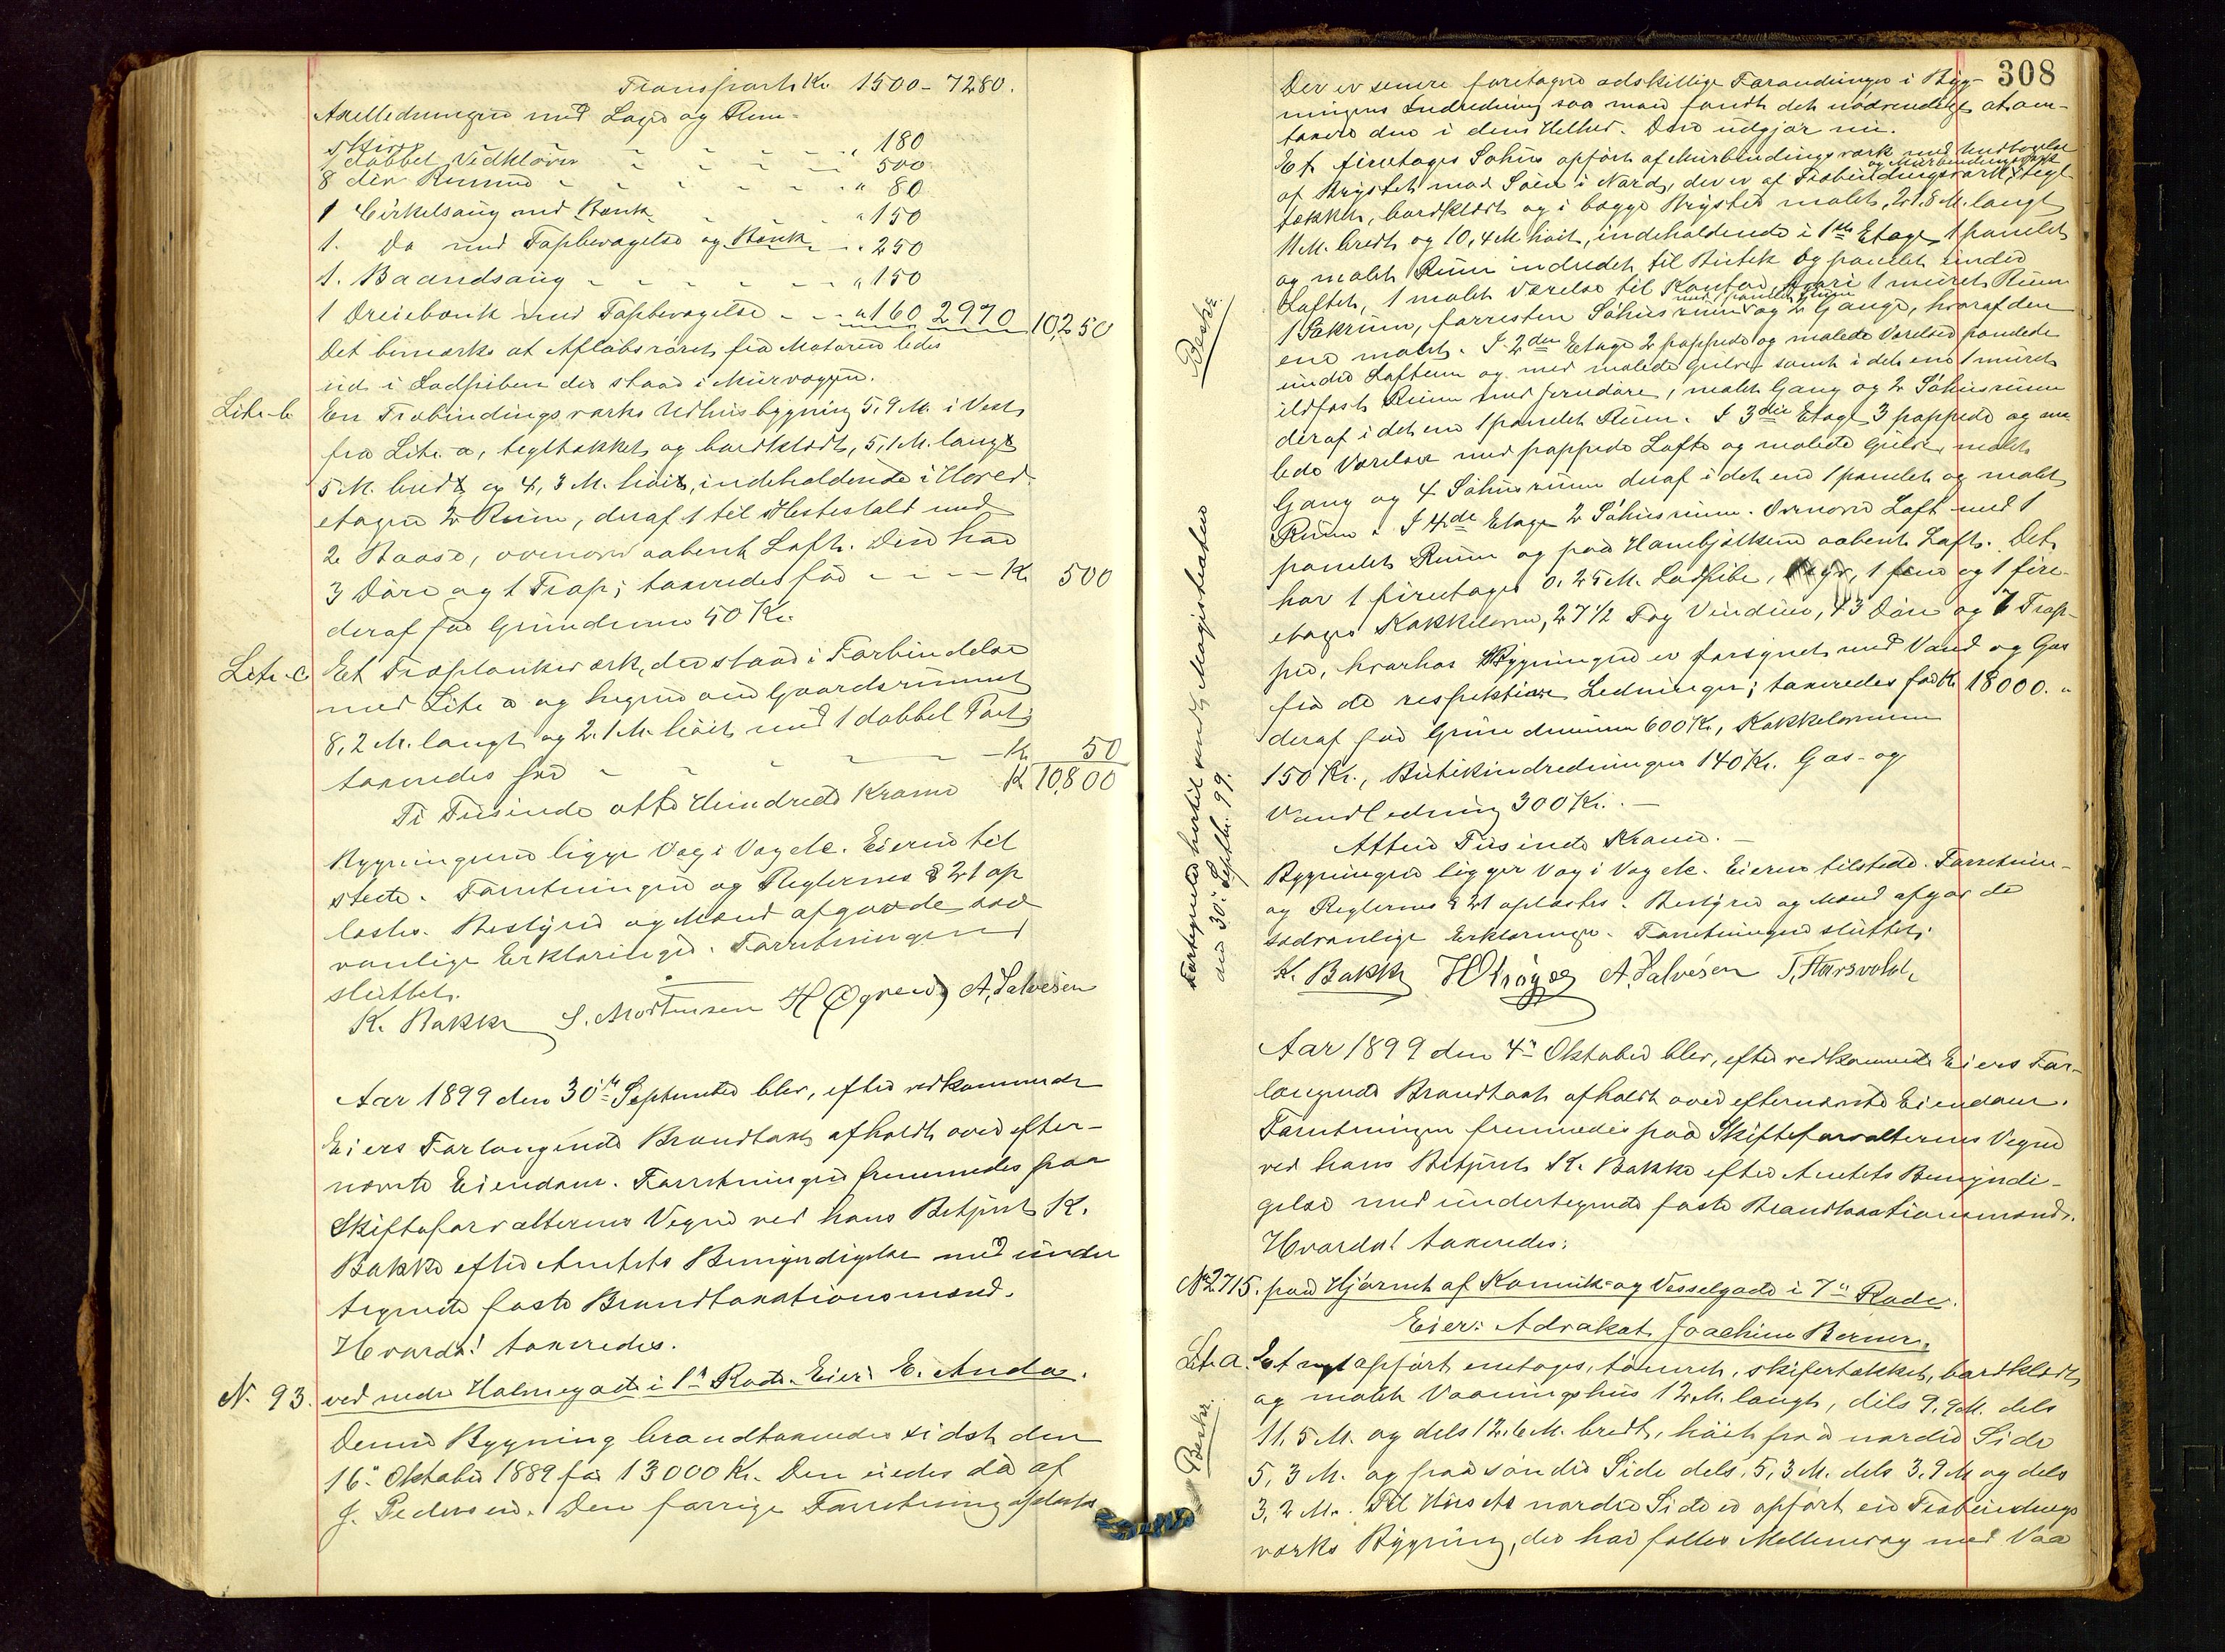 Transport Kr. 1500 - 7280.
Axelledningen med Lager og Rem-
skiver - - - - " 180
1 dobbel Vedkløver - - - - 500
8 der Remme - - - - " 80
1 Cirkelsaug med Bænk - - " 150
1. Do med Tapbevægelse og Bænk - " 250
1. Baandsaug - - - - - " 150
1 Dreiebænk med Tapbevægelse - - " 160 2970 10,250
Det bemærkes at Afløbsrøret fra Motoren ledes
ud i Ladpiben der staar i Murvæggen.
Litr. b En Træbindingsværks Udhusbygning 5,9 M. i Vest
fra Litr. a, tegltækket og bordklædt, 5,1 M. langt
5 M. bredt og 4,3 M. høit, indeholdende i Hoved-
etagen 2 Rum, deraf 1 til Hestestald med
2 Baase, ovenover aabent Loft. Den har
3 Døre og 1 Trap; taxeredes for - - - Kr. 500
deraf for Grundmur 50 Kr.
Litr. c Et Træplankeværk, der staar i Forbindelse
med Litr. a og hegner om Gaardsrummet
8,2 M. langt og 2.1 M. høit med 1 dobbel Port;
taxeredes for - - - - - Kr. 50
Ti Tusinde otte Hundrede Kroner Kr. 10,800
Bygningerne ligge Væg i Væg etc. Eieren til
stede. Forretningen og Reglernes § 21 op
læstes. Bestyrer og Mænd afgav de sæd
vanlige Erklæringer. Forretningen
sluttet.
K. Bakke S. Mortensen H Øgreid A. Salvesen
Aar 1899 den 30te September blev, efter vedkommende
Eiers Forlangende Brandtaxt afholdt over efter-
nævnte Eiendom. Forretningen fremmedes paa
Skifteforvalterens Vegne ved hans Betjent K.
Bakke efter Amtets Bemyndigelse med under
tegnede faste Brandtaxationsmænd.
Hvorda! taxeredes.
N. 93. ved nedre Holmegade i 1ste Rode. Eier: E. Anda.
Denne Bygning brandtaxeredes sidst den
16de Oktober 1889 for 13000 Kr. Den eiedes da af
J. Pedersen. Den forrige Forretning oplæstes
308
Der er senere foretagne adskillige Forandringer i Byg-
ningens Indredning saa man fandt det nødvendigt at om-
taxere den i dens Helhed. Den udgjør nu.
Beskr. Et fireetages Søhus opført af Murbindingsværk med Undtagelse
af Brystet mod Søen i Nord, der er af Træbindingsværk og Murbindingsværk, tegl
tækket, bordklædt og i begge Bryster malet, 21.8 M. langt
11 M. bredt og 10,4 M høit, indeholdende i 1ste Etage 1 panelet
og malet Rum indredet til Butik og panelet under
Loftet, 1 malet Værelse til Kontor, hvori 1 muret Rum
1 Pakrum, forresten Søhusrum med 1 panelet Rum og 2 Gange, hvoraf den
ene malet. I 2den Etage 2 pappede og malede Værelser panelede
under Loftene og med malede Gulve, samt i det ene 1 muret
ildfast Rum med Jerndøre, malet Gang og 2 Søhusrum
deraf i det ene 1 panelet Rum. I 3die Etage 3 pappede og ma-
lede Værelser med pappede Lofte og malede Gulve, malet
Gang og 4 Søhusrum deraf i det ene 1 panelet og malet
Rum. I 4de Etage 2 Søhusrum. Ovenover Loft med 1
panelet Rum og paa Hanebjelkene aabent Loft. Det
har 1 fireetages 0.25 M. Ladpibe, 1 fem og 1 fire-
etages Kakkelovne, 27 1/2 Fag Vinduer, 43 Døre og 7 Trap-
per, hvorhos Bygningen er forsynet med Vand og Gas
fra de respektive Ledninger; taxeredes for Kr. 18000. "
deraf for Grundmuren 600 Kr., Kakkelovnene
150 Kr., Butikindredningen 140 Kr. Gas- og
Vandledning 300 Kr. -
Atten Tusinde Kroner. -
Bygningen ligger Væg i Væg etc. Eieren tilstede. Forretnin-
og Reglernes § 21 oplæstes. Bestyrer og Mænd afgav de
sædvanlige Erklæringer. Forretningen sluttet.
K. Bakke A. Salvesen T. Harsvold
Fortegnede hertil sendt Magistraten
den 30. Septbr. 99.
Aar 1899 den 4de Oktober blev, efter vedkommende Eiers For-
langende Brandtaxt afholdt over efternævnte Eiendom.
Forretningen fremmedes paa Skifteforvalterens Vegne
ved hans Betjent K. Bakke efter Amtets Bemyndi-
gelse med undertegnede faste Brandtaxationsmænd.
Hvorda! taxeredes:
No 2715. paa Hjørnet af Kannik- og Vesselgade i 7de Rode.
Eier: Advokat Joachim Berner.
Litr. a. Beskr. Et nyt opført enetages, tømret, skifertækket, bordklædt
og malet Vaaningshus 12 M. langt, dels 9,9 M. dels
11,5 M. og dels 12.6 M. bredt, høit paa nordre Side
5,3 M. og paa søndre Side dels 5,3 M. dels 3,9 M og dels
3,2 M. Til Husets nordre Side er opført en Træbindings
værks Bygning, der har fælles Mellemvæg med Vaa